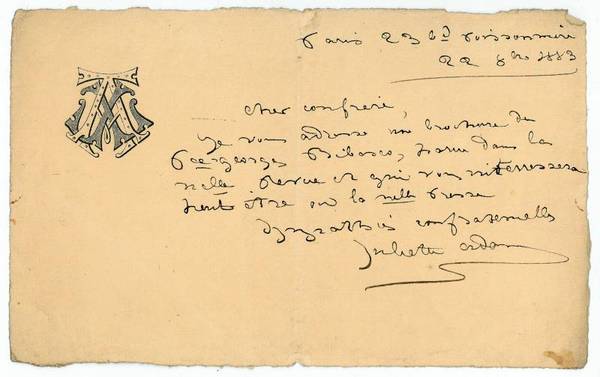 Paris 23 bd Poissonnière
22 8bre 1883
Cher confrère,
Je vous adresse une brochure du
Pce Georges Bibesco, parue dans la
Nelle Revue et qui vous intéressera
peut être ou la Nelle Presse
Sympathies confraternelles
Juliette Adam